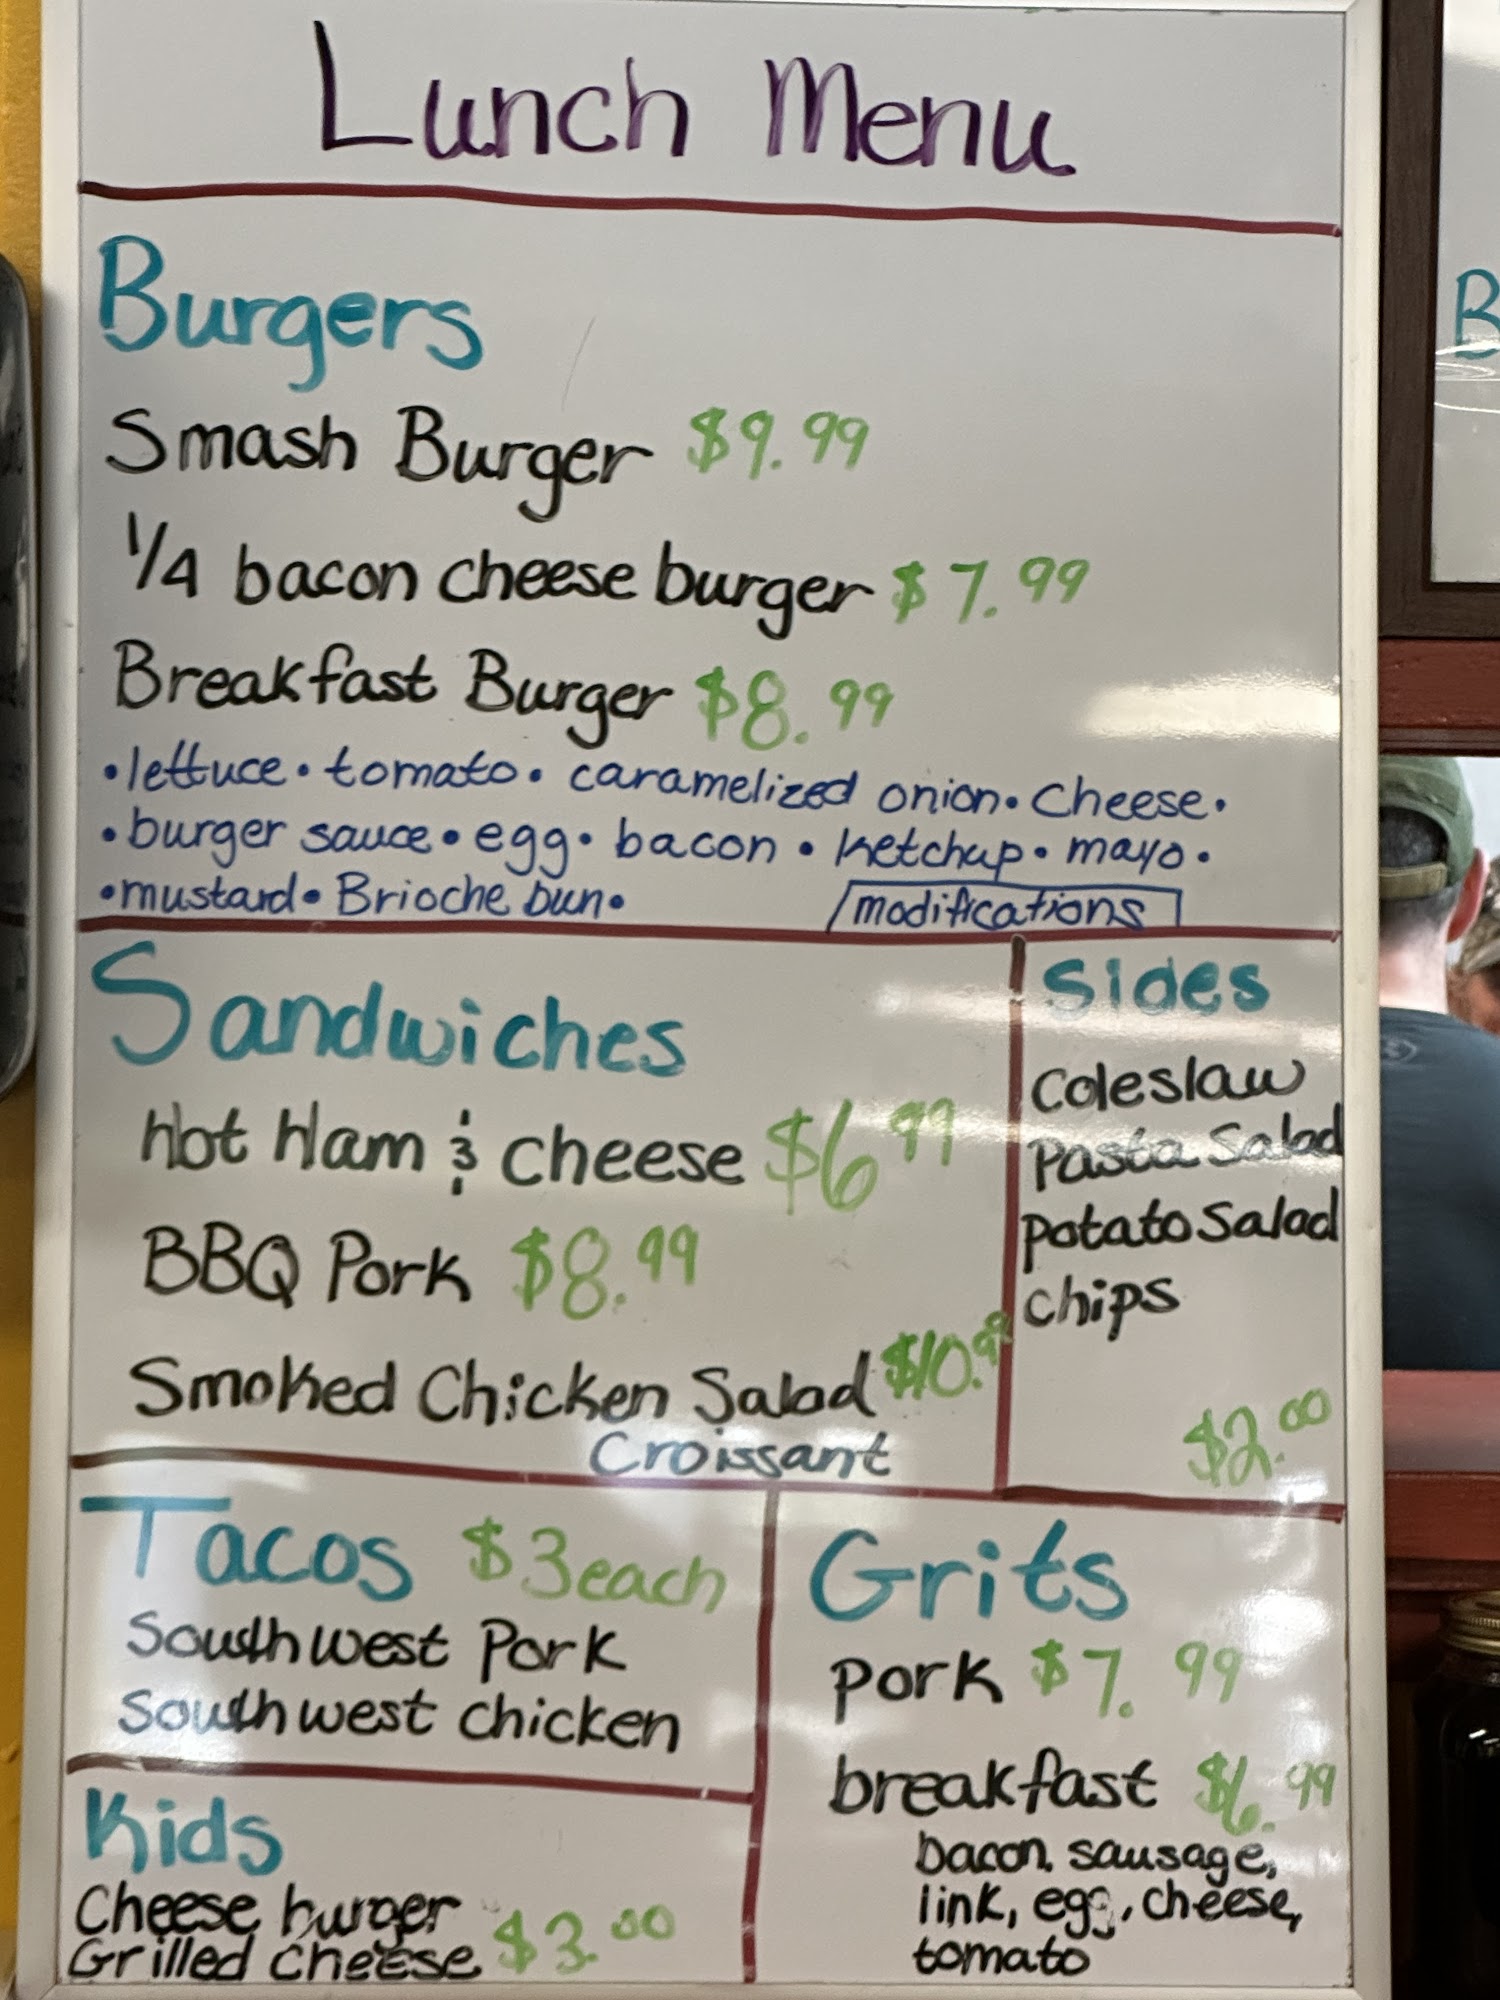 Lunch Menu
Burgers
Smash Burger $9.99
1/4 bacon cheese burger $7.99
Breakfast Burger $8.99
•lettuce•tomato•caramelized onion•cheese•
•burger sauce•egg•bacon•ketchup•mayo•
•mustard•Brioche bun•
modifications
Sandwiches
Hot Ham & cheese $6.99
BBQ Pork $8.99
Smoked Chicken Salad $10.99
Croissant
Sides
Coleslaw
Pasta Salad
Potato Salad
Chips
$2.00
Tacos $3 each
Southwest Pork
Southwest chicken
Grits
pork $7.99
breakfast $6.99
bacon, sausage,
link, egg, cheese,
tomato
Kids
Cheese burger
Grilled cheese $3.00
B